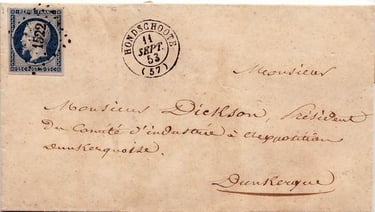 REPUB. FRANC.
1522
HONDSCHOOTE
11
SEPT.
53
(57)
Monsieur
Monsieur Dickson, Président
du Comité d'industrie à exposition
dunkerquoise.
Dunkerque